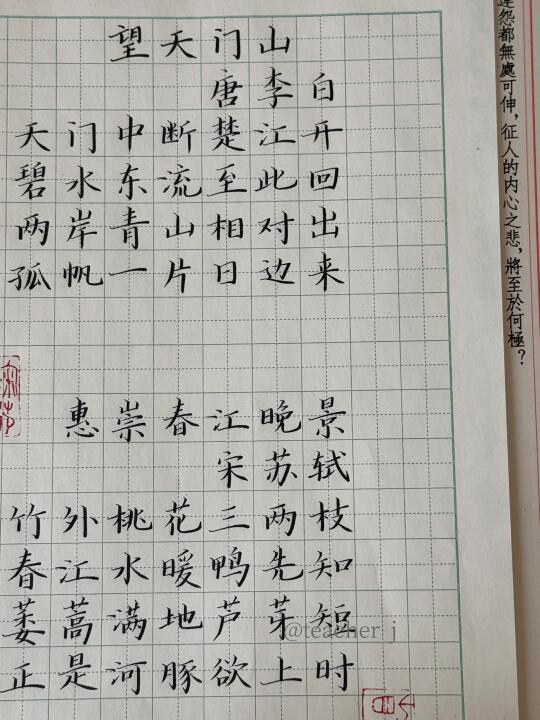 望天门山
唐李白
天门中断楚江开
碧水东流至此回
两岸青山相对出
孤帆一片日边来
惠崇春江晚景
宋苏轼
竹外桃花三两枝
春江水暖鸭先知
蒌蒿满地芦芽短
正是河豚欲上时
@teacher j
怨都無處可伸，征人的内心之悲，將至於何極？